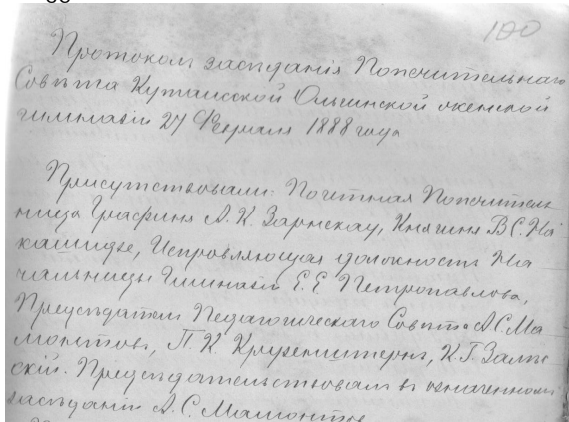 100
Протоколъ засѣданія Попечительнаго
Совѣта Кутаисской Ольгинской женской
гимназіи 27 Февраля 1888 года
Присутствовали: Почетная Попечитель
ница Графиня А. К. Княгиня В. С. На
кашидзе, Исправляющая должность На
чальницы Гимназіи Е. Е. Петропавлова,
Предсѣдатель Педагогическаго Совѣта А. С. Ма
монтовъ, П. К. Крузенштернъ, К. Г. Залѣс
скій. Предсѣдательствовалъ въ означенномъ
засѣданіи А. С. Мамонтов